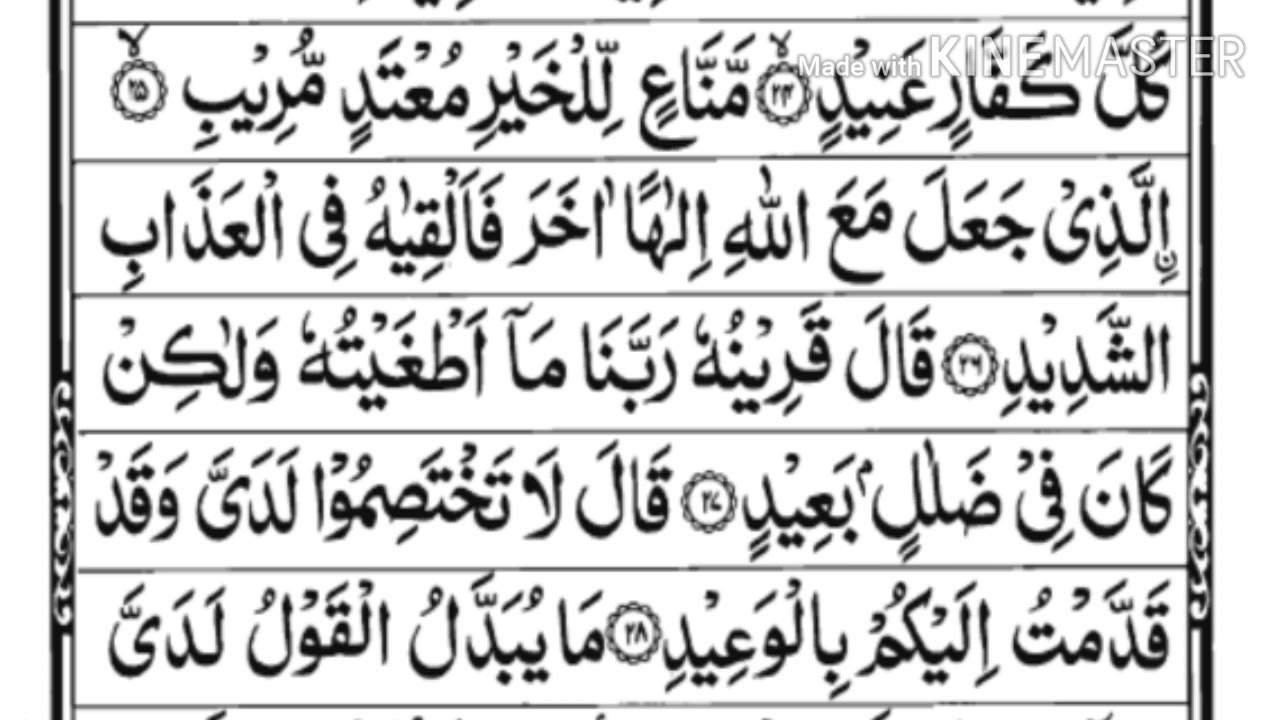 Made with KINEMASTER
كُلَّ كَفَّارٍ عَنِيْدٍ ﴿۲۴﴾ مَّنَّاعٍ لِّلْخَيْرِ مُعْتَدٍ مُّرِيْبِ ﴿۲۵﴾
اۨلَّذِىْ جَعَلَ مَعَ اللّٰهِ اِلٰهًا اٰخَرَ فَاَلْقِيٰهُ فِى الْعَذَابِ
الشَّدِيْدِ ﴿۲۶﴾ قَالَ قَرِيْنُهٗ رَبَّنَا مَاۤ اَطْغَيْتُهٗ وَلٰكِنْ
كَانَ فِىْ ضَلٰلٍۢ بَعِيْدٍ ﴿۲۷﴾ قَالَ لَا تَخْتَصِمُوْا لَدَىَّ وَقَدْ
قَدَّمْتُ اِلَيْكُمْ بِالْوَعِيْدِ ﴿۲۸﴾ مَا يُبَدَّلُ الْقَوْلُ لَدَىَّ